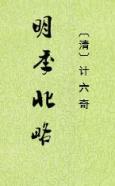 〔清〕计六奇
明季北略